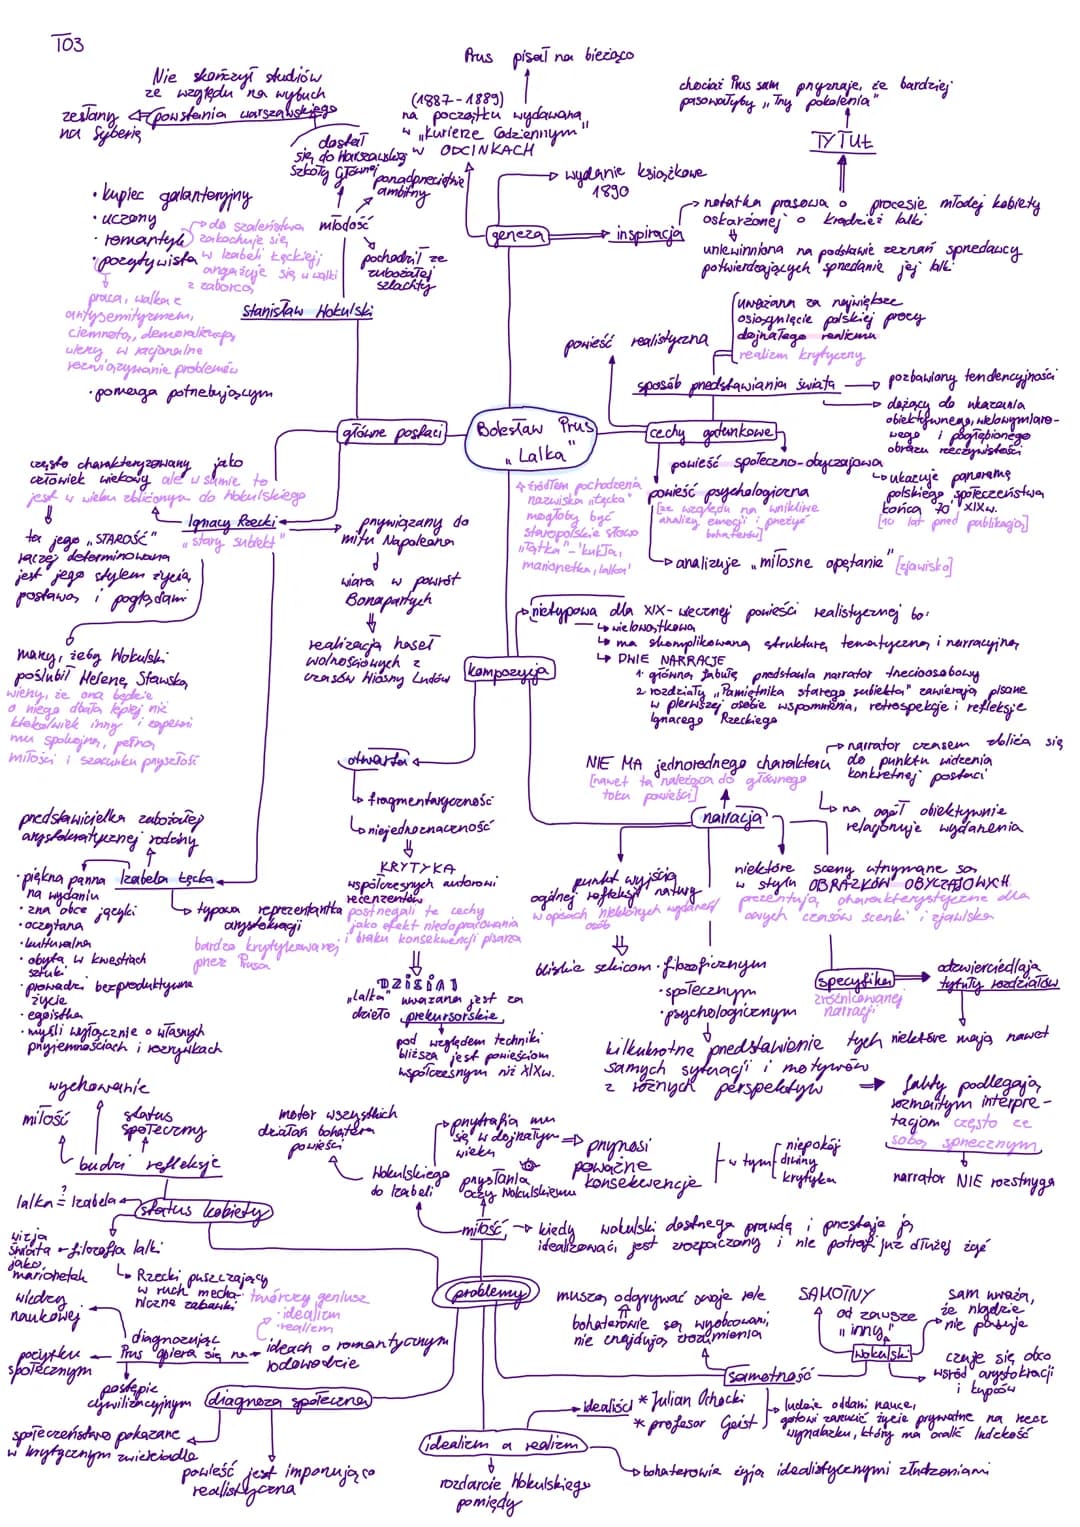 T03
Nie skończył studiów
ze względu na wybuch
powstania warszawskiego
zesłany
na Syberię
dostał
się do Warszawskiej
Szkoły Głównej
ponadprzeciętnie
ambitny
młodość
pochodził ze
zubożałej
szlachty
• kupiec galanteryjny
• uczony
• romantyk
• pozytywista
do szaleństwa
zakochuje się
w Izabeli Łęckiej,
angażuje się w walki
z zaborcą
praca, walka z
antysemityzmem,
ciemnotą, demoralizacją,
wierzy w racjonalne
rozwiązywanie problemów
• pomaga potrzebującym
Stanisław Wokulski
Prus pisał na bieżąco
(1887-1889)
na początku wydawana
w „Kurierze Codziennym"
w ODCINKACH
wydanie książkowe
1890
geneza
inspiracja
chociaż Prus sam przyznaje, że bardziej
pasowałyby „Trzy pokolenia"
TYTUŁ
notatka prasowa o procesie młodej kobiety
oskarżonej o kradzież lalki
uniewinniona na podstawie zeznań sprzedawcy
potwierdzających sprzedanie jej lalki
uważana za największe
osiągnięcie polskiej prozy
dojrzałego realizmu
realizm krytyczny
powieść realistyczna
sposób przedstawiania świata
pozbawiony tendencyjności
dążący do ukazania
obiektywnego, wielowymiaro-
wego i pogłębionego
obrazu rzeczywistości
główne postaci
Bolesław Prus
„Lalka"
cechy gatunkowe
powieść społeczno-obyczajowa
ukazuje panoramę
polskiego społeczeństwa
końca 70' XIXw.
[10 lat przed publikacją]
powieść psychologiczna
[ze względu na wnikliwe
analizy emocji i przeżyć
bohaterów]
analizuje „miłosne opętanie" [zjawisko]
źródłem pochodzenia
nazwiska „Łęcka"
mogłoby być
staropolskie słowo
„łątka" - 'kukła,
marionetka, lalka'
często charakteryzowany jako
człowiek wiekowy ale w sumie to
jest w wieku zbliżonym do Wokulskiego
Ignacy Rzecki
„stary subiekt"
ta jego „STAROŚĆ"
raczej determinowana
jest jego stylem życia,
postawą i poglądami
marzy, żeby Wokulski
poślubił Helenę Stawską
wierzy, że ona będzie
o niego dbała lepiej niż
ktokolwiek inny i zapewni
mu spokojną, pełną
miłości i szacunku przyszłość
przywiązany do
mitu Napoleona
wiara w powrót
Bonapartych
realizacja haseł
wolnościowych z
czasów Wiosny Ludów
kompozycja
nietypowa dla XIX-wiecznej powieści realistycznej bo:
wielowątkowa
ma skomplikowaną strukturę tematyczną i narracyjną
DWIE NARRACJE
1 główną fabułę przedstawia narrator trzecioosobowy
2 rozdziały „Pamiętnika starego subiekta" zawierają pisane
w pierwszej osobie wspomnienia, retrospekcje i refleksje
Ignacego Rzeckiego
otwarta
fragmentaryczność
niejednoznaczność
KRYTYKA
współczesnych autorowi
recenzentów
postrzegali te cechy
jako efekt niedopracowania
i braku konsekwencji pisarza
DZISIAJ
„Lalka" uważana jest za
dzieło prekursorskie
pod względem techniki
bliższa jest powieściom
współczesnym niż XIXw.
NIE MA jednorodnego charakteru
[nawet ta należąca do głównego
toku powieści]
narrator czasem zbliża się
do punktu widzenia
konkretnej postaci
na ogół obiektywnie
relacjonuje wydarzenia
narracja
punkt wyjścia
ogólnej refleksji natury
w opisach niektórych wydarzeń
osób
bliskie szkicom • filozoficznym
• społecznym
• psychologicznym
niektóre sceny utrzymane są
w stylu OBRAZKÓW OBYCZAJOWYCH
prezentują charakterystyczne dla
owych czasów scenki i zjawiska
specyfika
zróżnicowanej
narracji
odzwierciedlają
tytuły rozdziałów
kilkukrotne przedstawienie tych niektóre mają nawet
samych sytuacji i motywów
z różnych perspektyw
fakty podlegają
rozmaitym interpre-
tacjom często ze
sobą sprzecznym
narrator NIE rozstrzyga
przedstawicielka zubożałej
arystokratycznej rodziny
Izabela Łęcka
• piękna panna
na wydaniu
• zna obce języki
• oczytana
• kulturalna
• obyta w kwestiach
sztuki
• prowadzi bezproduktywne
życie
• egoistka
• myśli wyłącznie o własnych
przyjemnościach i rozrywkach
typowa reprezentantka
arystokracji
bardzo krytykowanej
przez Prusa
wychowanie
miłość
status
społeczny
budzi refleksje
lalka ?= Izabela
status kobiety
wizja
świata
jako
marionetek
filozofia lalki
Rzecki puszczający
w ruch mecha-
niczne zabawki
motor wszystkich
działań bohatera
powieści
Wokulskiego
do Izabeli
przytrafia mu
się w dojrzałym
wieku
przynosi
poważne
konsekwencje
w tym
niepokój
dziwny
krytyka
przysłania
oczy Wokulskiemu
miłość
kiedy Wokulski dostrzega prawdę i przestaje ją
idealizować, jest zrozpaczony i nie potrafi już dłużej żyć
problemy
wiedzy
naukowej
pożytku
społecznym
diagnozując
Prus opiera się na
postępie
cywilizacyjnym
twórczy geniusz
• idealizm
• realizm
ideach o romantycznym
rodowodzie
diagnoza społeczna
społeczeństwo pokazane
w krytycznym zwierciadle
powieść jest imponująco
realistyczna
muszą odgrywać swoje role
bohaterowie są wyobcowani,
nie znajdują zrozumienia
SAMOTNY
od zawsze
„inny"
sam uważa,
że nigdzie
nie pasuje
Wokulski
czuje się obco
wśród arystokracji
i kupców
samotność
idealiści * Julian Ochocki
* profesor Geist
ludzie oddani nauce,
gotowi zarzucić życie prywatne na rzecz
wynalazku, który ma ocalić ludzkość
idealizm a realizm
bohaterowie żyją idealistycznymi złudzeniami
rozdarcie Wokulskiego
pomiędzy